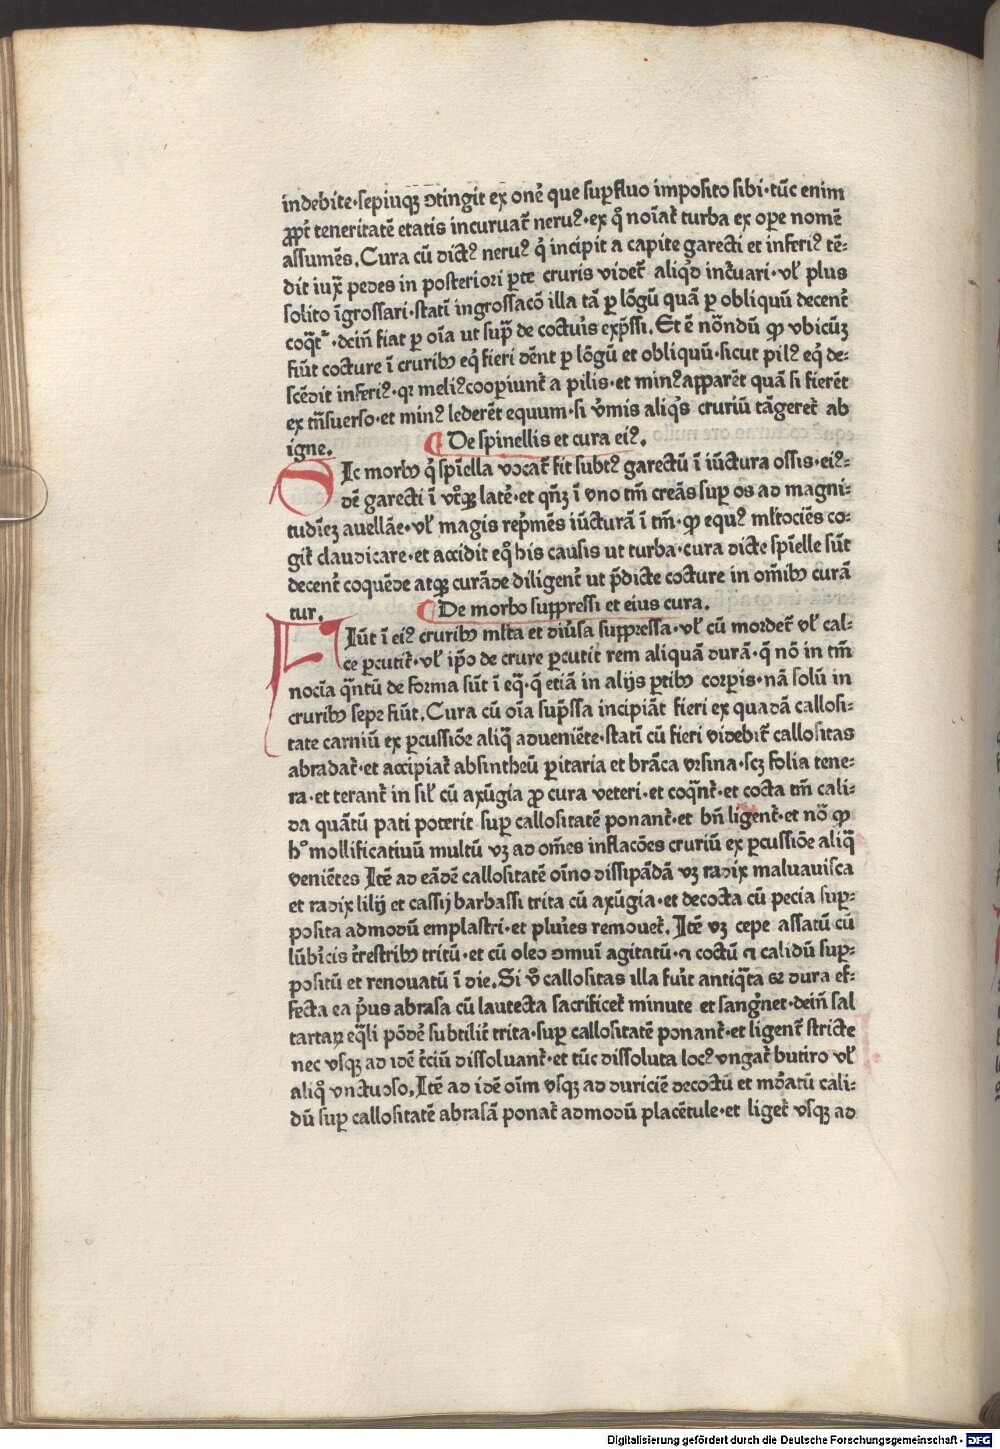 indebite·sepiusqꝫ ↄtingit ex one᷒ que suꝑfluo imposito sibi·tūc enim
ꝓpt̄ teneritatē etatis incuruat̄ neruꝰ·ex qͦ noīat̄ turba ex oꝑe nomē
assumēs. Cura cū dictꝰ neruꝰ qͥ incipit a capite garecti et inferiꝰ tē⸗
dit iux̄ pedes in posteriori ꝑte cruris videt̄ aliqͥd inc̄uari·vl̄ plus
solito īgrossari·statī ingrossacō illa tā ꝑ lōgū quā ꝑ obliquū decent̄
coq̄t̄·dein̄ fiat ꝑ oīa ut sup̄ de cocturis exp̄ssi. Et ē nōndū ꝙ vbicūꝫ
fiūt cocture ī cruribꝫ eqͥ fieri dēnt ꝑ lōgū et obliquū·sicut pilꝰ eqͥ de⸗
scēdit inferiꝰ·qꝛ meliꝰcooꝑiunt̄ a pilis·et minꝰapparēt quā si fierēt
ex tn̄suerso·et minꝰ lederēt equum·si v̄mis aliqͥs cruriū tāgeret̄ ab
igne. ¶ De spinellis et cura eiꝰ.
SIc morbꝫ qͥ spīella vocat̄ fit subtꝰ garectū ī iūctura ossis·eiꝰ⸗
dē garecti ī vt̄qꝫ late᷒·et qn̄ꝫ ī vno tm̄ creās suꝑ os ad magni⸗
tudīeꝫ auellāe·vl̄ magis rep̄mēs iūcturā ī tm̄·ꝙ equꝰ ml̄tociēs co⸗
git̄ claudicare·et accidit eqͦ his causis ut turba·cura dicte spīelle sūt
decent̄ coquēde atqꝫ curāde diligent̄ ut p̄dicte cocture in om̄ibꝫ curā
tur. ¶ De morbo suppressi et eius cura.
FIūt ī eiꝰ cruribꝫ ml̄ta et diūsa suppressa·vl̄ cū mordet̄ vl̄ cal⸗
ce ꝑcutit̄·vl̄ ip̄o de crure ꝑcutit rem aliquā durā·q̄ nō in tm̄
nocīa q̄ntū de forma sūt ī eq̄·q̄ etiā in alijs ꝑtibꝫ corpis·nā solū in
cruribꝫ sepe fiūt. Cura cū oīa sup̄ssa incipiāt fieri ex quadā callosi⸗
tate carniū ex ꝑcussiōe aliq̄ adueniēte·statī cū fieri videbit̄ callositas
abradat̄·et accipiat̄ absintheū ꝑitaria et brāca vrsina·scꝫ folia tene⸗
ra·et terant̄ in sil̄ cū axūgia ꝓ cura veteri·et coq̄nt̄·et cocta tm̄ cali⸗
da quātū pati poterit suꝑ callositatē ponant̄·et bn̄ ligent̄·et nō ꝙ
hͦ mollificatiuū multū vꝫ ad om̄es inflacōes cruriū ex ꝑcussiōe aliq̄
veniētes Itē ad eādē callositatē oīno dissipādā vꝫ radix maluauisca
et radix lilij et cassij barbassi trita cū axūgia·et decocta cū pecia suꝑ⸗
posita admodū emplastri·et pluͥes remouet̄. Itē vꝫ cepe assatū cū
lūbͥcis t̄restribꝫ tritū·et cū oleo ↄmuī agitatū·⁊ coctū ⁊ calidū suꝑ⸗
positū et renouatū ī die. Si vͦ callositas illa fuīt antiq̄ta se dura ef⸗
fecta ea pͥus abrasa cū lautecta sacrificet̄ minute et sangͥnet·dein̄ sal
tartaꝝ eq̄li pōdē subtilit̄ trita·suꝑ callositatē ponant̄·et ligent̄ stricte
nec vsqꝫ ad idē t̄ciū dissoluant̄·et tūc dissoluta locꝰ vngat̄ butiro vl̄
aliqͦ vnctuoso. Itē ad idē oīm vsqꝫ ad duriciē decoctū et mōatū cali⸗
dū suꝑ callositatē abrasā ponat̄ admodū placētule·et liget̄ vsqꝫ ad
Digitalisierung gefördert durch die Deutsche Forschungsgemeinschaft - DFG